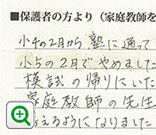 ■保護者の方より（家庭教師を
小4の2月から塾に通って
小5の2月でやめました
模試の帰りにいた
家庭教師の先生
えるようになりました